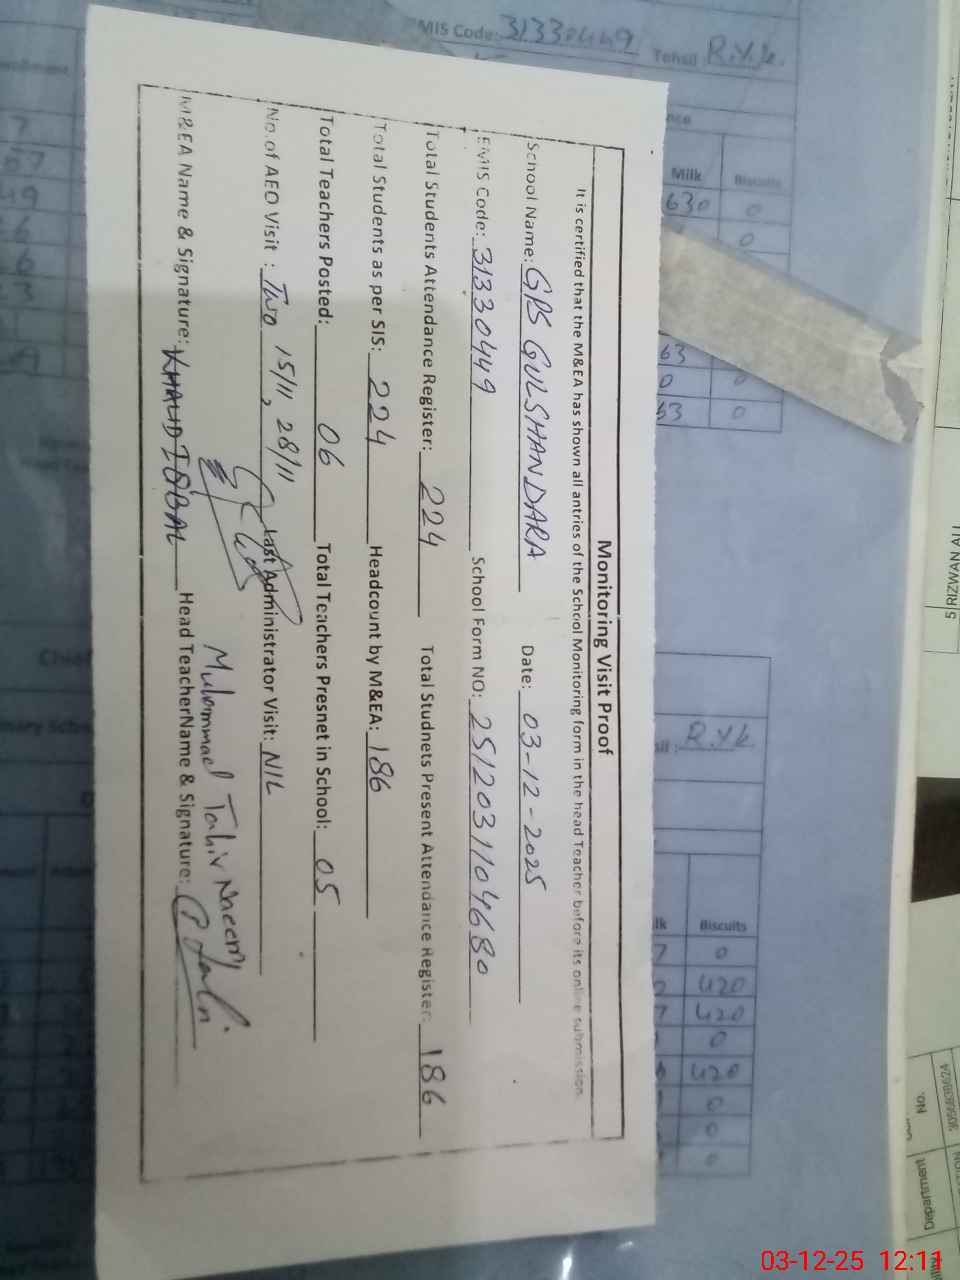 Monitoring Visit Proof
It is certified that the M&EA has shown all antries of the School Monitoring form in the head Teacher before its online submission.
School Name: GPS GULSHAN DARA Date: 03-12-2025
EMIS Code: 31330449 School Form NO: 2512031104680
Total Students Attendance Register: 224 Total Studnets Present Attendance Register: 186
Total Students as per SIS: 224 Headcount by M&EA: 186
Total Teachers Posted: 06 Total Teachers Presnet in School: 05
No.of AEO Visit : Two 15/11, 28/11 Last Administrator Visit: NIL
Muhammad Tahir Naeem
M&EA Name & Signature: KHALID IQBAL Head TeacherName & Signature:
MIS Code: 31330449 Tehsil: R.Y.K.
Milk Biscuits
630 0
0
63 0
0 0
63 0
R.Y.K
Biscuits
7 0
420
7 420
0
420
0
0
0
S RIZWAN ALI
No.
Department
03-12-25 12:11